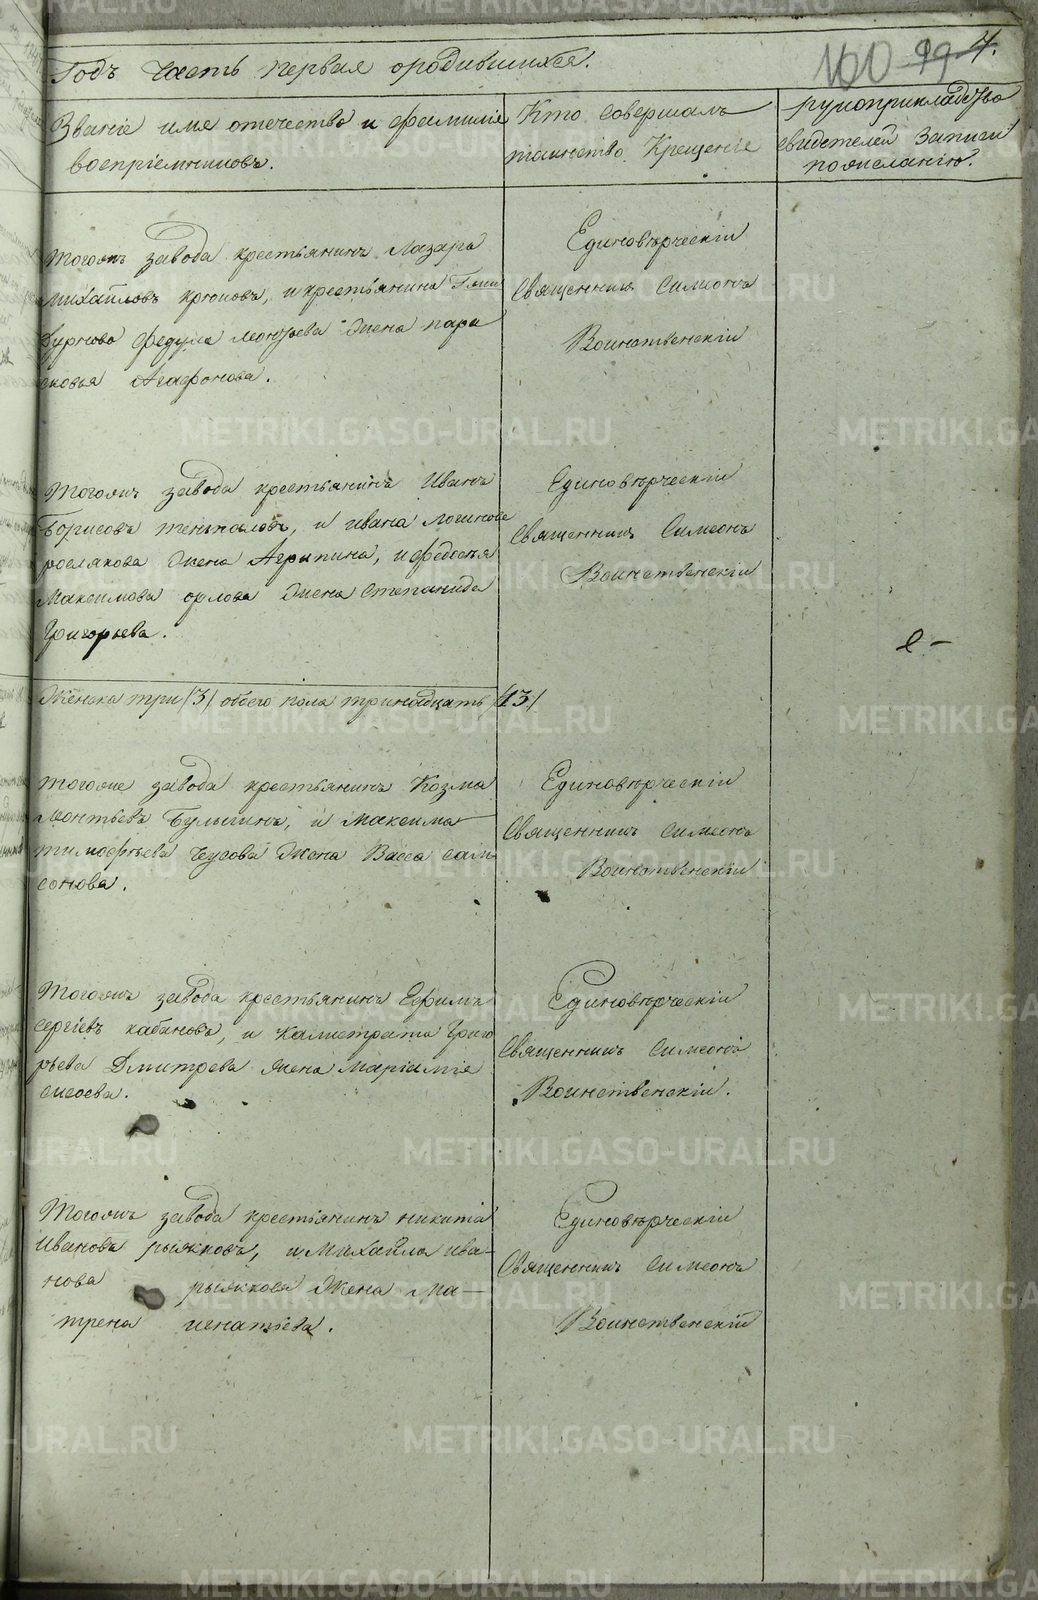 100 99 4.
Годъ часть первая ородившихся.
Званіе имя отечество и фамиліе
воспріемниковъ.
Кто совершалъ
таинство Крещеніе
рукоприкладство
свидетелей записи
по желанію.
тогожъ завода крестьянинъ Лазарь
Михайловъ крюковъ, и крестьянина
Федула леонтьева жена пара
сковья Агафонова.
Единовѣрческій
Священникъ Симеонъ
Воинственскій
Тогожъ завода крестьянинъ Иванъ
Борисовъ теньковъ, и ивана логинова
рослякова жена Агрипина, и федосья
Максимова орлова жена степанида
Григорьева.
Единовѣрческій
Священникъ Симеонъ
Воинственскій
Женска три /3/ обоего пола тринадцать /13/
тогоже завода крестьянинъ Козма
леонтьевъ Булыгинъ, и Максима
тимофѣева Чусова жена Васса сам
сонова.
Единовѣрческій
Священникъ Симеонъ
Воинственскій
Тогожъ завода крестьянинъ Ефимъ
сергіевъ кабановъ, и Калистрата Григо
рьева Дмитрева жена маріамія
сисоева.
Единовѣрческій
Священникъ Симеонъ
Воинственскій.
Тогожъ завода крестьянинъ никита
Ивановъ рыжковъ, и Михайла ива-
нова рыжкова жена ма-
трена игнатьева.
Единовѣрческій
Священникъ Симеонъ
Воинственскій
METRIKI.GASO-URAL.RU